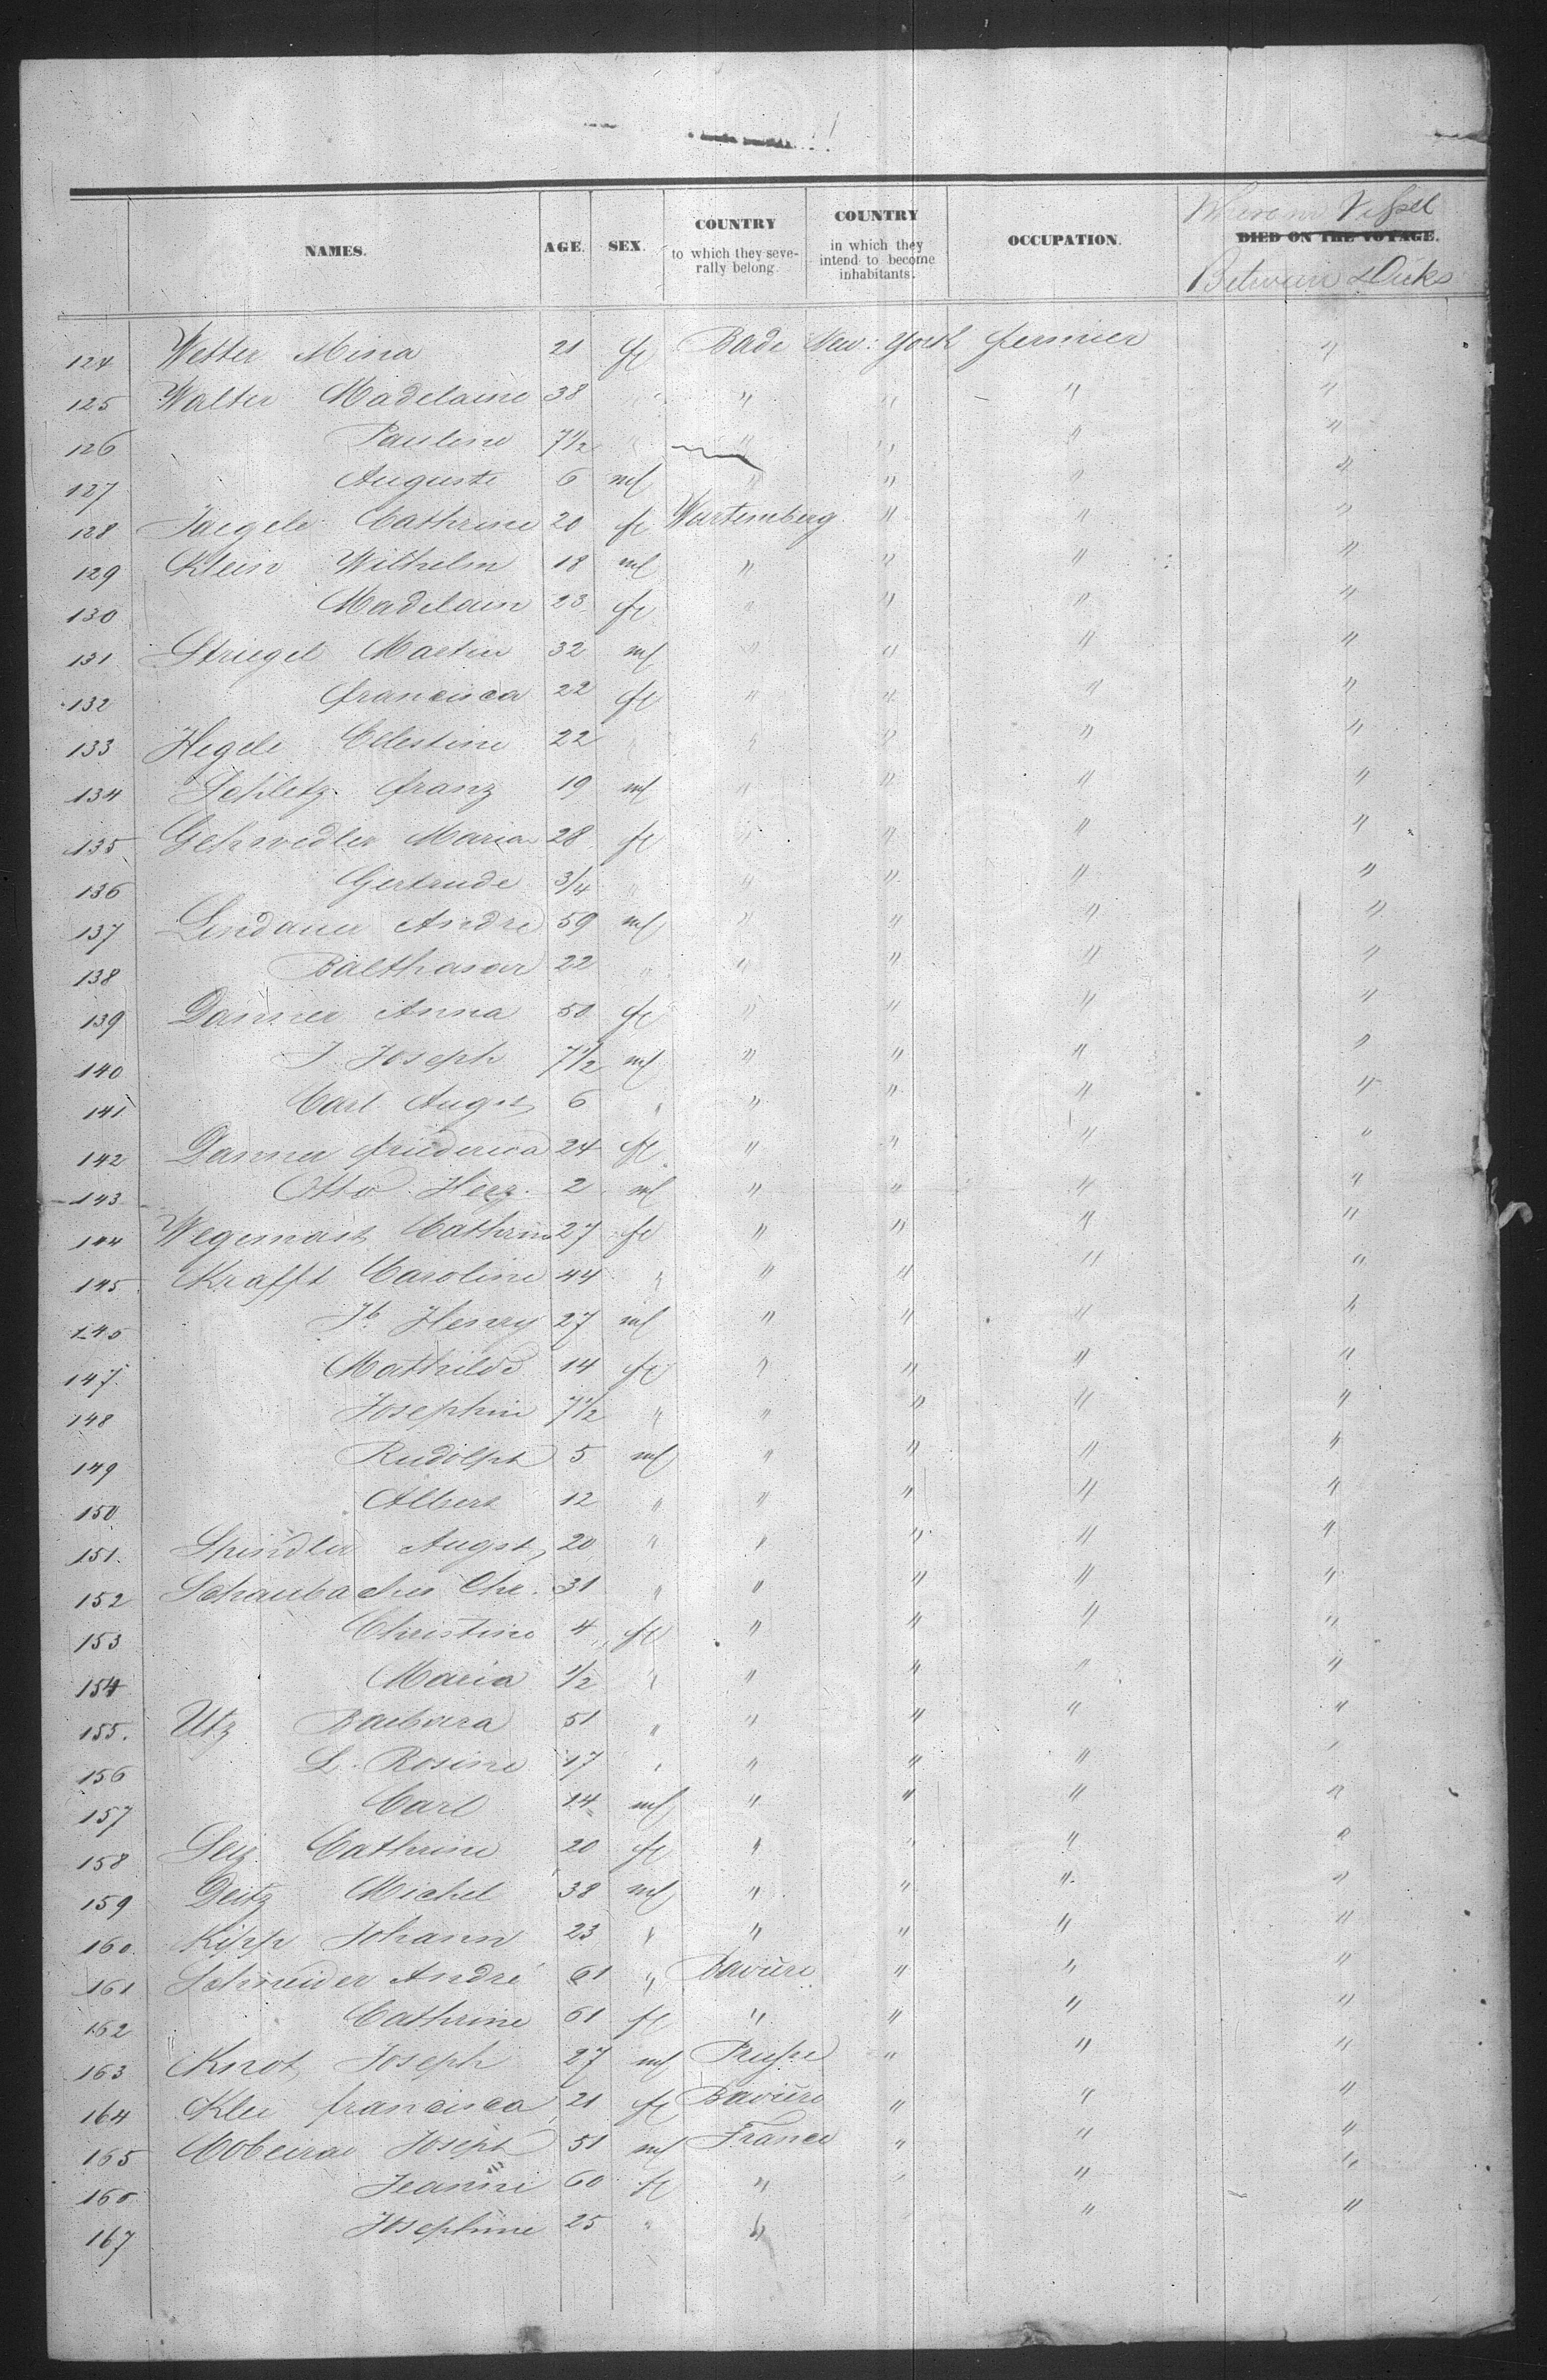 NAMES. AGE. SEX. COUNTRY to which they seve-rally belong. COUNTRY in which they intend to become inhabitants. OCCUPATION. DIED ON THE VOYAGE. Vessel Between Decks
124 Wetter Mina 21 fe Bade New: York fermier "
125 Walter Madelaine 38 " " " " "
126 Pauline 7 1/2 " " " " "
127 Auguste 6 ml " " " "
128 Jaegele Cathrine 20 fe Wurtemberg " " "
129 Klein Wilhelm 18 ml " " " "
130 Madelain 23 fe " " " "
131 Striegel Martin 32 ml " " " "
132 francisca 22 fe " " " "
133 Hegele Celestine 22 " " " " "
134 Schletz franz 19 ml " " " "
135 Gehwedler Maria 28 fe " " " "
136 Gertrude 3/4 " " " " "
137 Lindauer André 59 ml " " " "
138 Balthasar 22 " " " " "
139 Danner Anna 50 fe " " " "
140 J. Joseph 7 1/2 ml " " " "
141 Carl Augst 6 " " " " "
142 Danner friederica 24 fe " " " "
143 Otto 2 ml " " " "
144 Wegemast Cathrine 27 fe " " " "
145 Krafft Caroline 44 " " " " "
145 Jb Henry 27 ml " " " "
147 Mathilde 14 fe " " " "
148 Josephine 7 1/2 " " " " "
149 Rudolph 5 ml " " " "
150 Albert 12 " " " " "
151. Spindler Augst, 20 " " " " "
152 Schaubacher Chr. 31 " " " " "
153 Christine 4 fe " " " "
154 Maria 1/2 " " " " "
155. Utz Barbara 51 " " " " "
156 L. Rosine 17 " " " " "
157 Carl 14 ml " " " "
158 Seiz Cathrine 20 fe " " " "
159 Deitz Michel 38 ml " " " "
160. Kipp Johann 23 " " " " "
161 Schneider André 61 " Baviére " " "
162 Cathrine 61 fe " " " "
163 Knot Joseph 27 ml Prusse " " "
164 Klee francisca 21 fe Baviére " " "
165 Joseph 51 ml France " " "
166 Jeanne 60 fe " " " "
167 Josephine 25 " " " "